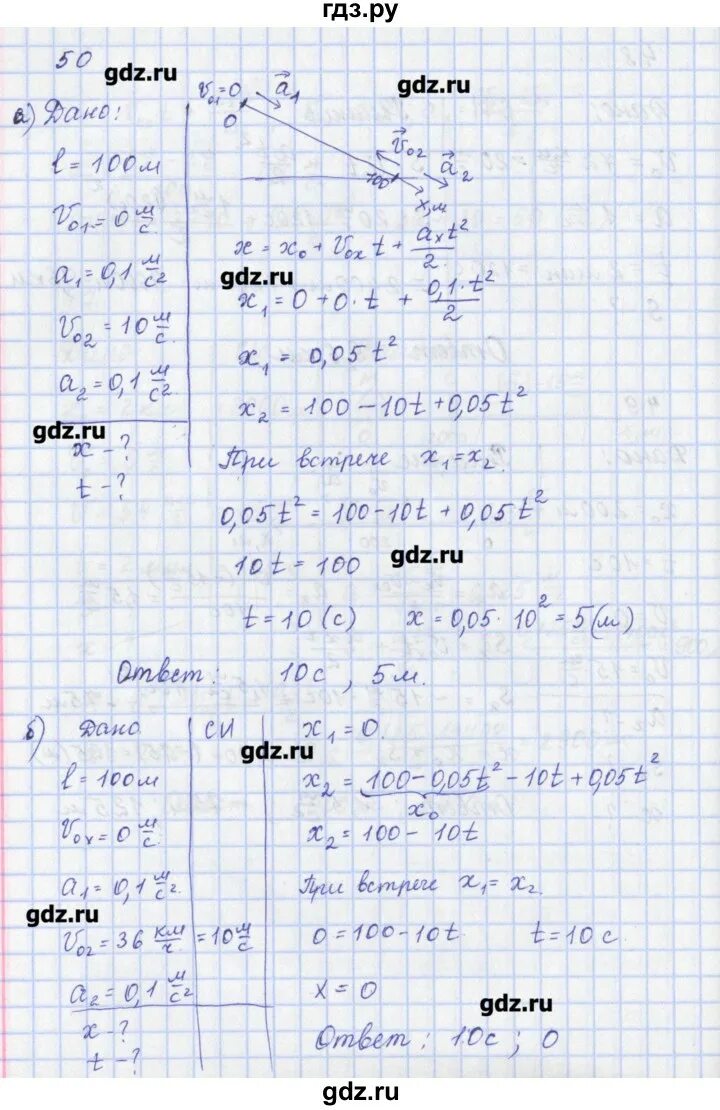 гдз.ру
50
gdz.ru
gdz.ru
а) Дано:
l = 100 м
V₀₁ = 0 м/с
a₁ = 0,1 м/с²
V₀₂ = 10 м/с.
a₂ = 0,1 м/с²
gdz.ru
x - ?
t - ?
V₀₁ = 0
a⃗₁
0
V⃗₀₂
a⃗₂
100
x, м
x = x₀ + V₀ₓ t + aₓt²/2.
gdz.ru
x₁ = 0 + 0 · t + 0,1 · t²/2
x₁ = 0,05 t²
x₂ = 100 - 10t + 0,05t²
При встрече x₁ = x₂.
0,05t² = 100 - 10t + 0,05t²
10t = 100
gdz.ru
t = 10 (с) x = 0,05 · 10² = 5 (м)
Ответ: 10 с, 5 м.
б) Дано
l = 100 м
V₀ₓ = 0 м/с
a₁ = 0,1 м/с².
gdz.ru
V₀₂ = 36 км/ч
a₂ = 0,1 м/с²
x - ?
t - ?
СИ
= 10 м/с
gdz.ru
x₁ = 0.
x₂ = 100 - 0,05t² - 10t + 0,05t²
x₀
x₂ = 100 - 10t
При встрече x₁ = x₂.
0 = 100 - 10t. t = 10 с.
x = 0
gdz.ru
Ответ: 10 с; 0
gdz.ru